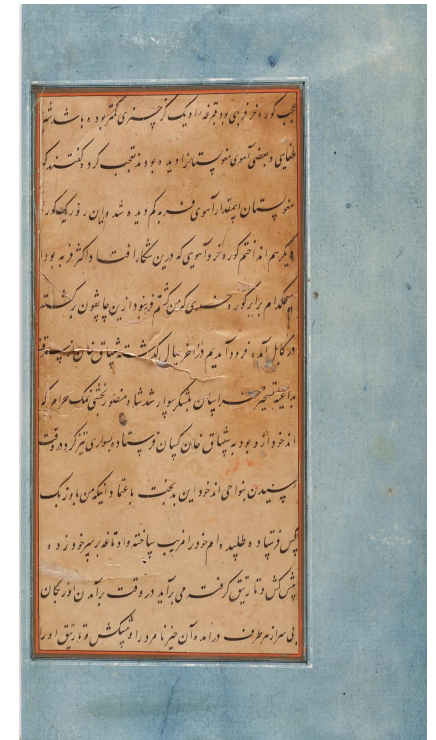 عجب کوره خر فربهی بود قبرغه او یک گز چیزی کمتر بوده باشد شیم
طغایی و بعضی آهوی منولستانرا دیده بودند تعجب کرده گفتند که
منولستان اینمقدار آهوی فربه کم دیده شده این روز یک کوره خر
دیگر هم انداختم کوره خر و آهویی که درین شکار افتاد اکثر فربه بود اما
هیچکدام برابر کوره خری که من کشتم فربه نبود ازین چاپقون برگشته
در کابل آمده فرود آمدیم در آخر سال گذشته شیباق خان از سمرقند
بداعیه تسخیر خراسان لشکر سوار شد شاه منصور بخشی نمک حرام که
اند خود ازو بود به شیباق خان کسان فرستاده بسواری تیز کرد در وقت
رسیدن بنواحی اند خود این بدبخت باعتماد اینکه من باوزبک
کس فرستاده طلبیده ام خود را فریب ساخته و اوتاغه بر سر خود زده
پیش کش و تارتیق گرفته می برآید در وقت برآمدن اوزبکان
بی سر از هر طرف درآمده آن حیز نامرد را و پیشکش و تارتیق او را